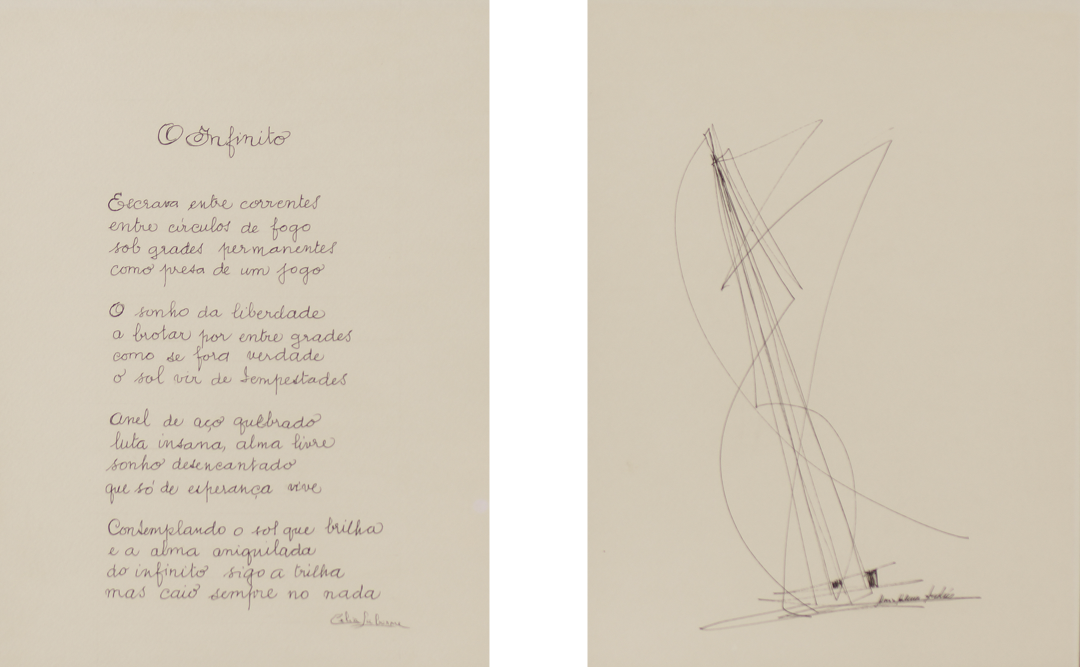 O Infinito
Escrava entre correntes
entre círculos de fogo
sob grades permanentes
como presa de um jogo
O sonho da liberdade
a brotar por entre grades
como se fora verdade
o sol vir de tempestades
Anel de aço quebrado
luta insana, alma livre
sonho desencantado
que só de esperança vive
Contemplando o sol que brilha
e a alma aniquilada
do infinito sigo a trilha
mas caio sempre no nada